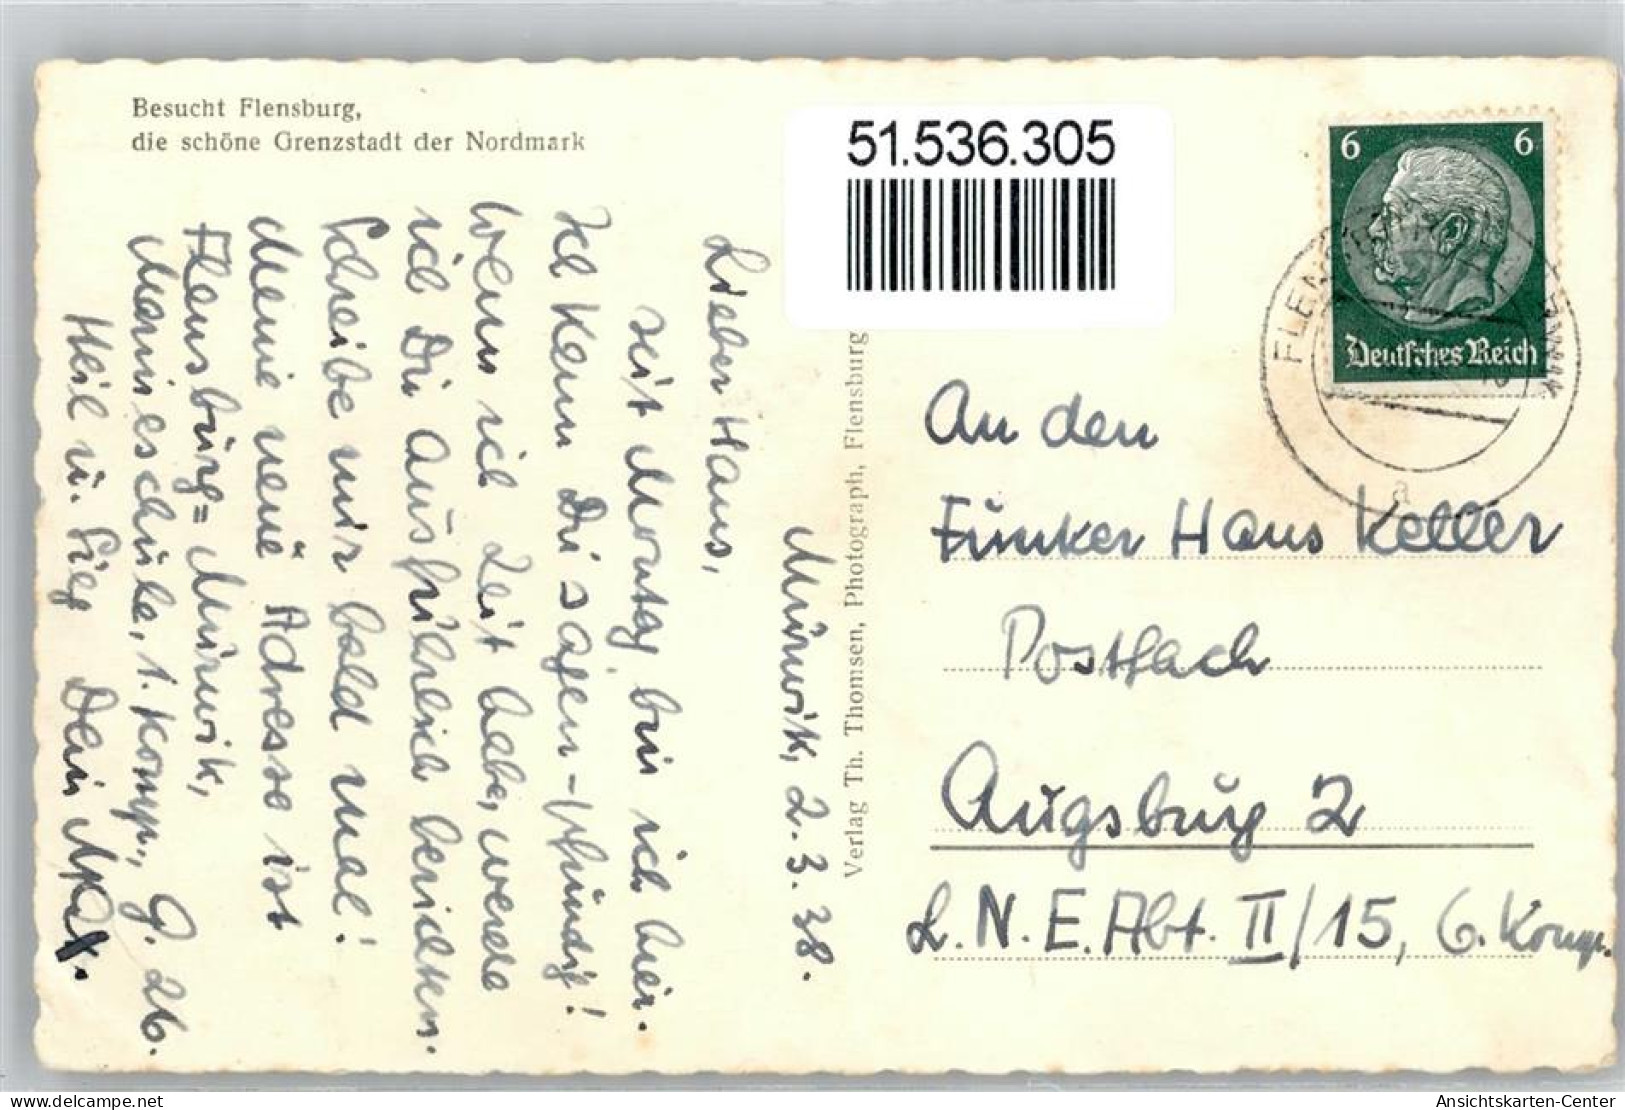 Besucht Flensburg,
die schöne Grenzstadt der Nordmark
51.536.305
6 6
Deutsches Reich
FLENSB
a
Verlag Th. Thomsen, Photograph, Flensburg
Mürwik, 2. 3. 38.
Lieber Hans,
seit Montag bin ich hier.
Ich kann Dir sagen - pfundig!
Wenn ich Zeit habe, werde
ich Dir ausführlich berichten.
Schreibe mir bald mal!
Meine neue Adresse ist
Flensburg= Mürwik,
Marineschule, 1. Komp., G. 26.
Heil u. Sieg Dein
An den
Funker Hans Keller
Postfach
Augsburg 2
L. N. E. Abt. II/15, 6. Komp.
delcampe.net
Ansichtskarten-Center